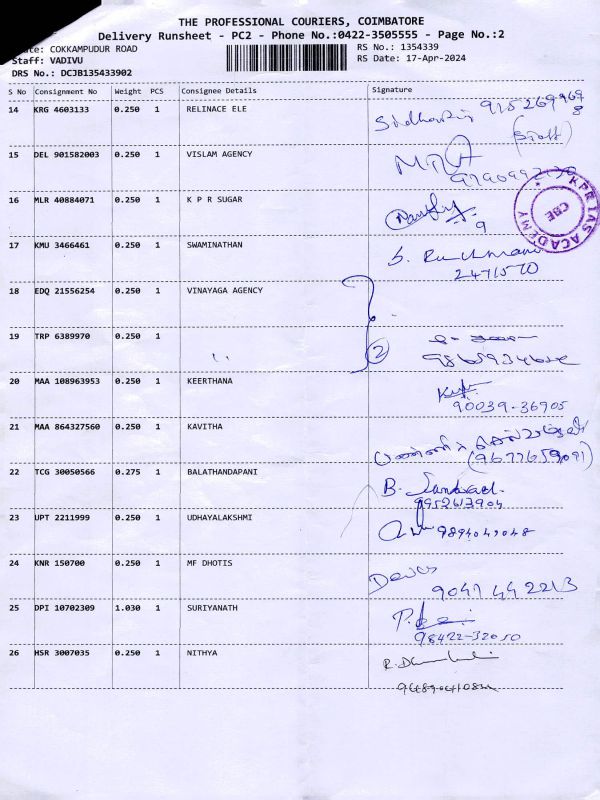 THE PROFESSIONAL COURIERS, COIMBATORE
Delivery Runsheet - PC2 - Phone No.:0422-3505555 - Page No.:2
COKKAMPUDUR ROAD RS No.: 1354339
Staff: VADIVU RS Date: 17-Apr-2024
DRS No.: DCJB135433902
S No Consignment No Weight PCS Consignee Details Signature
14 KRG 4603133 0.250 1 RELINACE ELE
(Staff)
15 DEL 901582003 0.250 1 VISLAM AGENCY
16 MLR 40884071 0.250 1 K P R SUGAR
9
KPR IAS ACADEMY
CBE
17 KMU 3466461 0.250 1 SWAMINATHAN
2471570
18 EDQ 21556254 0.250 1 VINAYAGA AGENCY
19 TRP 6389970 0.250 1
2
20 MAA 108963953 0.250 1 KEERTHANA
90039-36905
21 MAA 864327560 0.250 1 KAVITHA
(9677659091)
22 TCG 30050566 0.275 1 BALATHANDAPANI
B.
9952613904
23 UPT 2211999 0.250 1 UDHAYALAKSHMI
9894049048
24 KNR 150700 0.250 1 MF DHOTIS
9047 44 2213
25 DPI 10702309 1.030 1 SURIYANATH
98422-32050
26 HSR 3007035 0.250 1 NITHYA